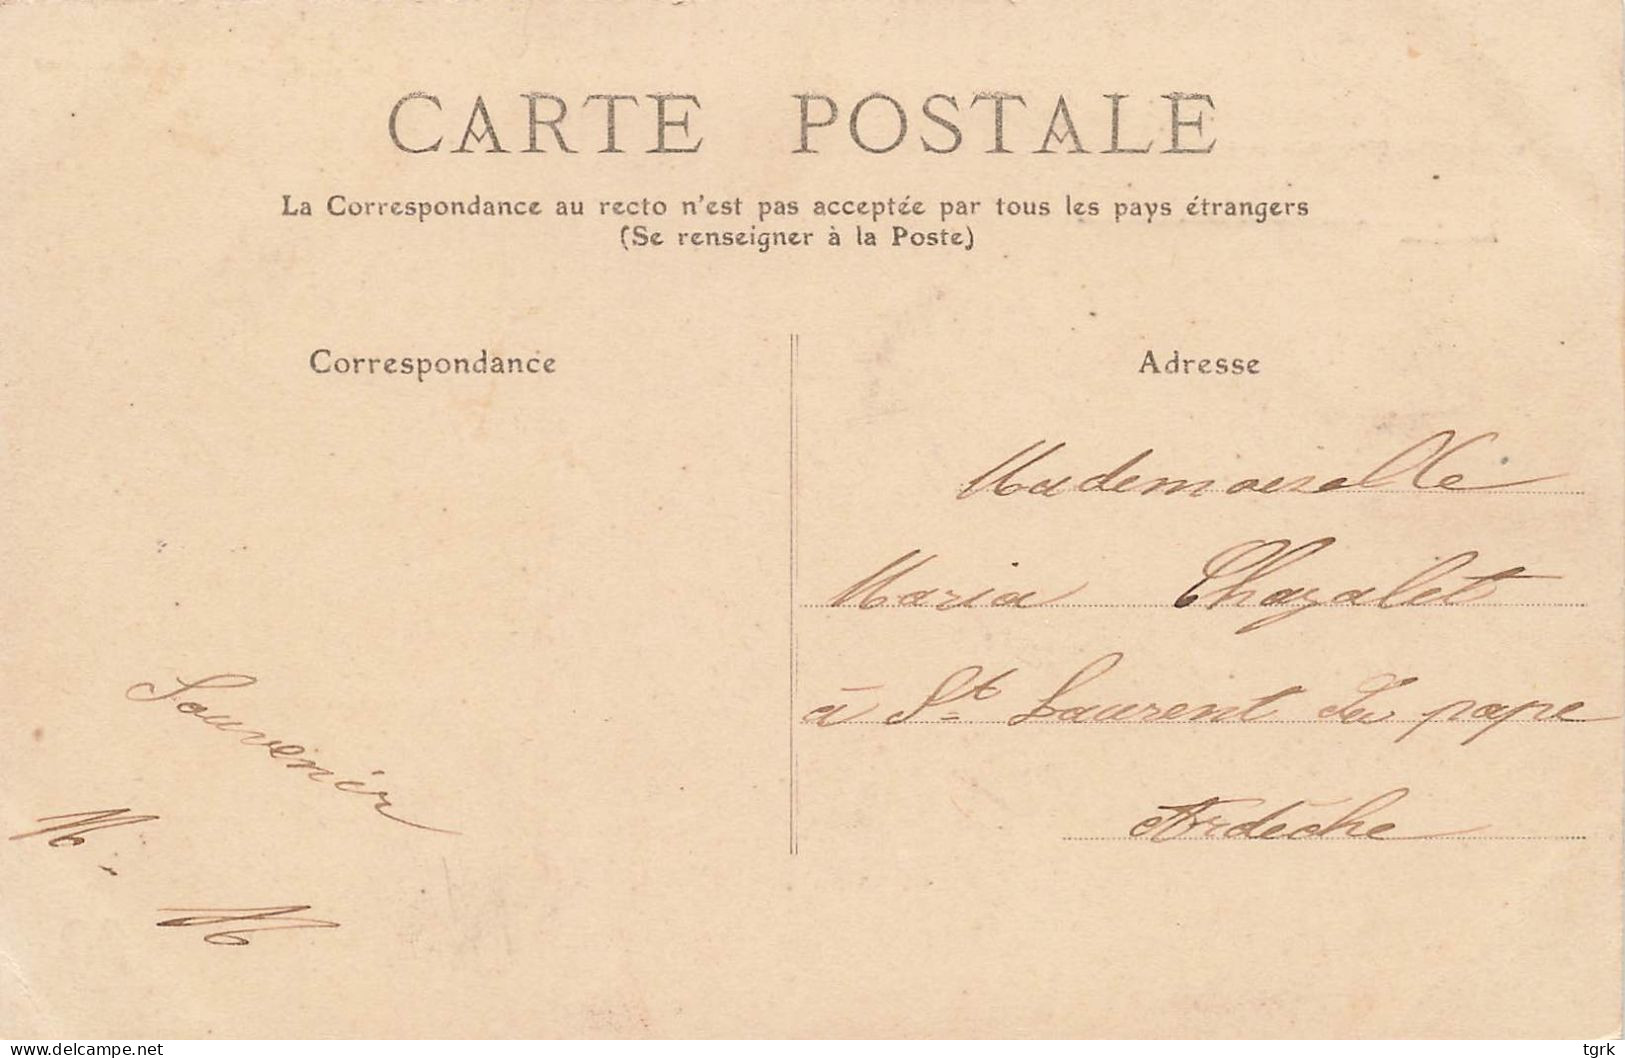 CARTE POSTALE
La Correspondance au recto n'est pas acceptée par tous les pays étrangers
(Se renseigner à la Poste)
Correspondance
Souvenir
M.
M
Adresse
Mademoiselle
Maria Chazalet
à St Laurent du pape
Ardèche
www.delcampe.net
tgrk